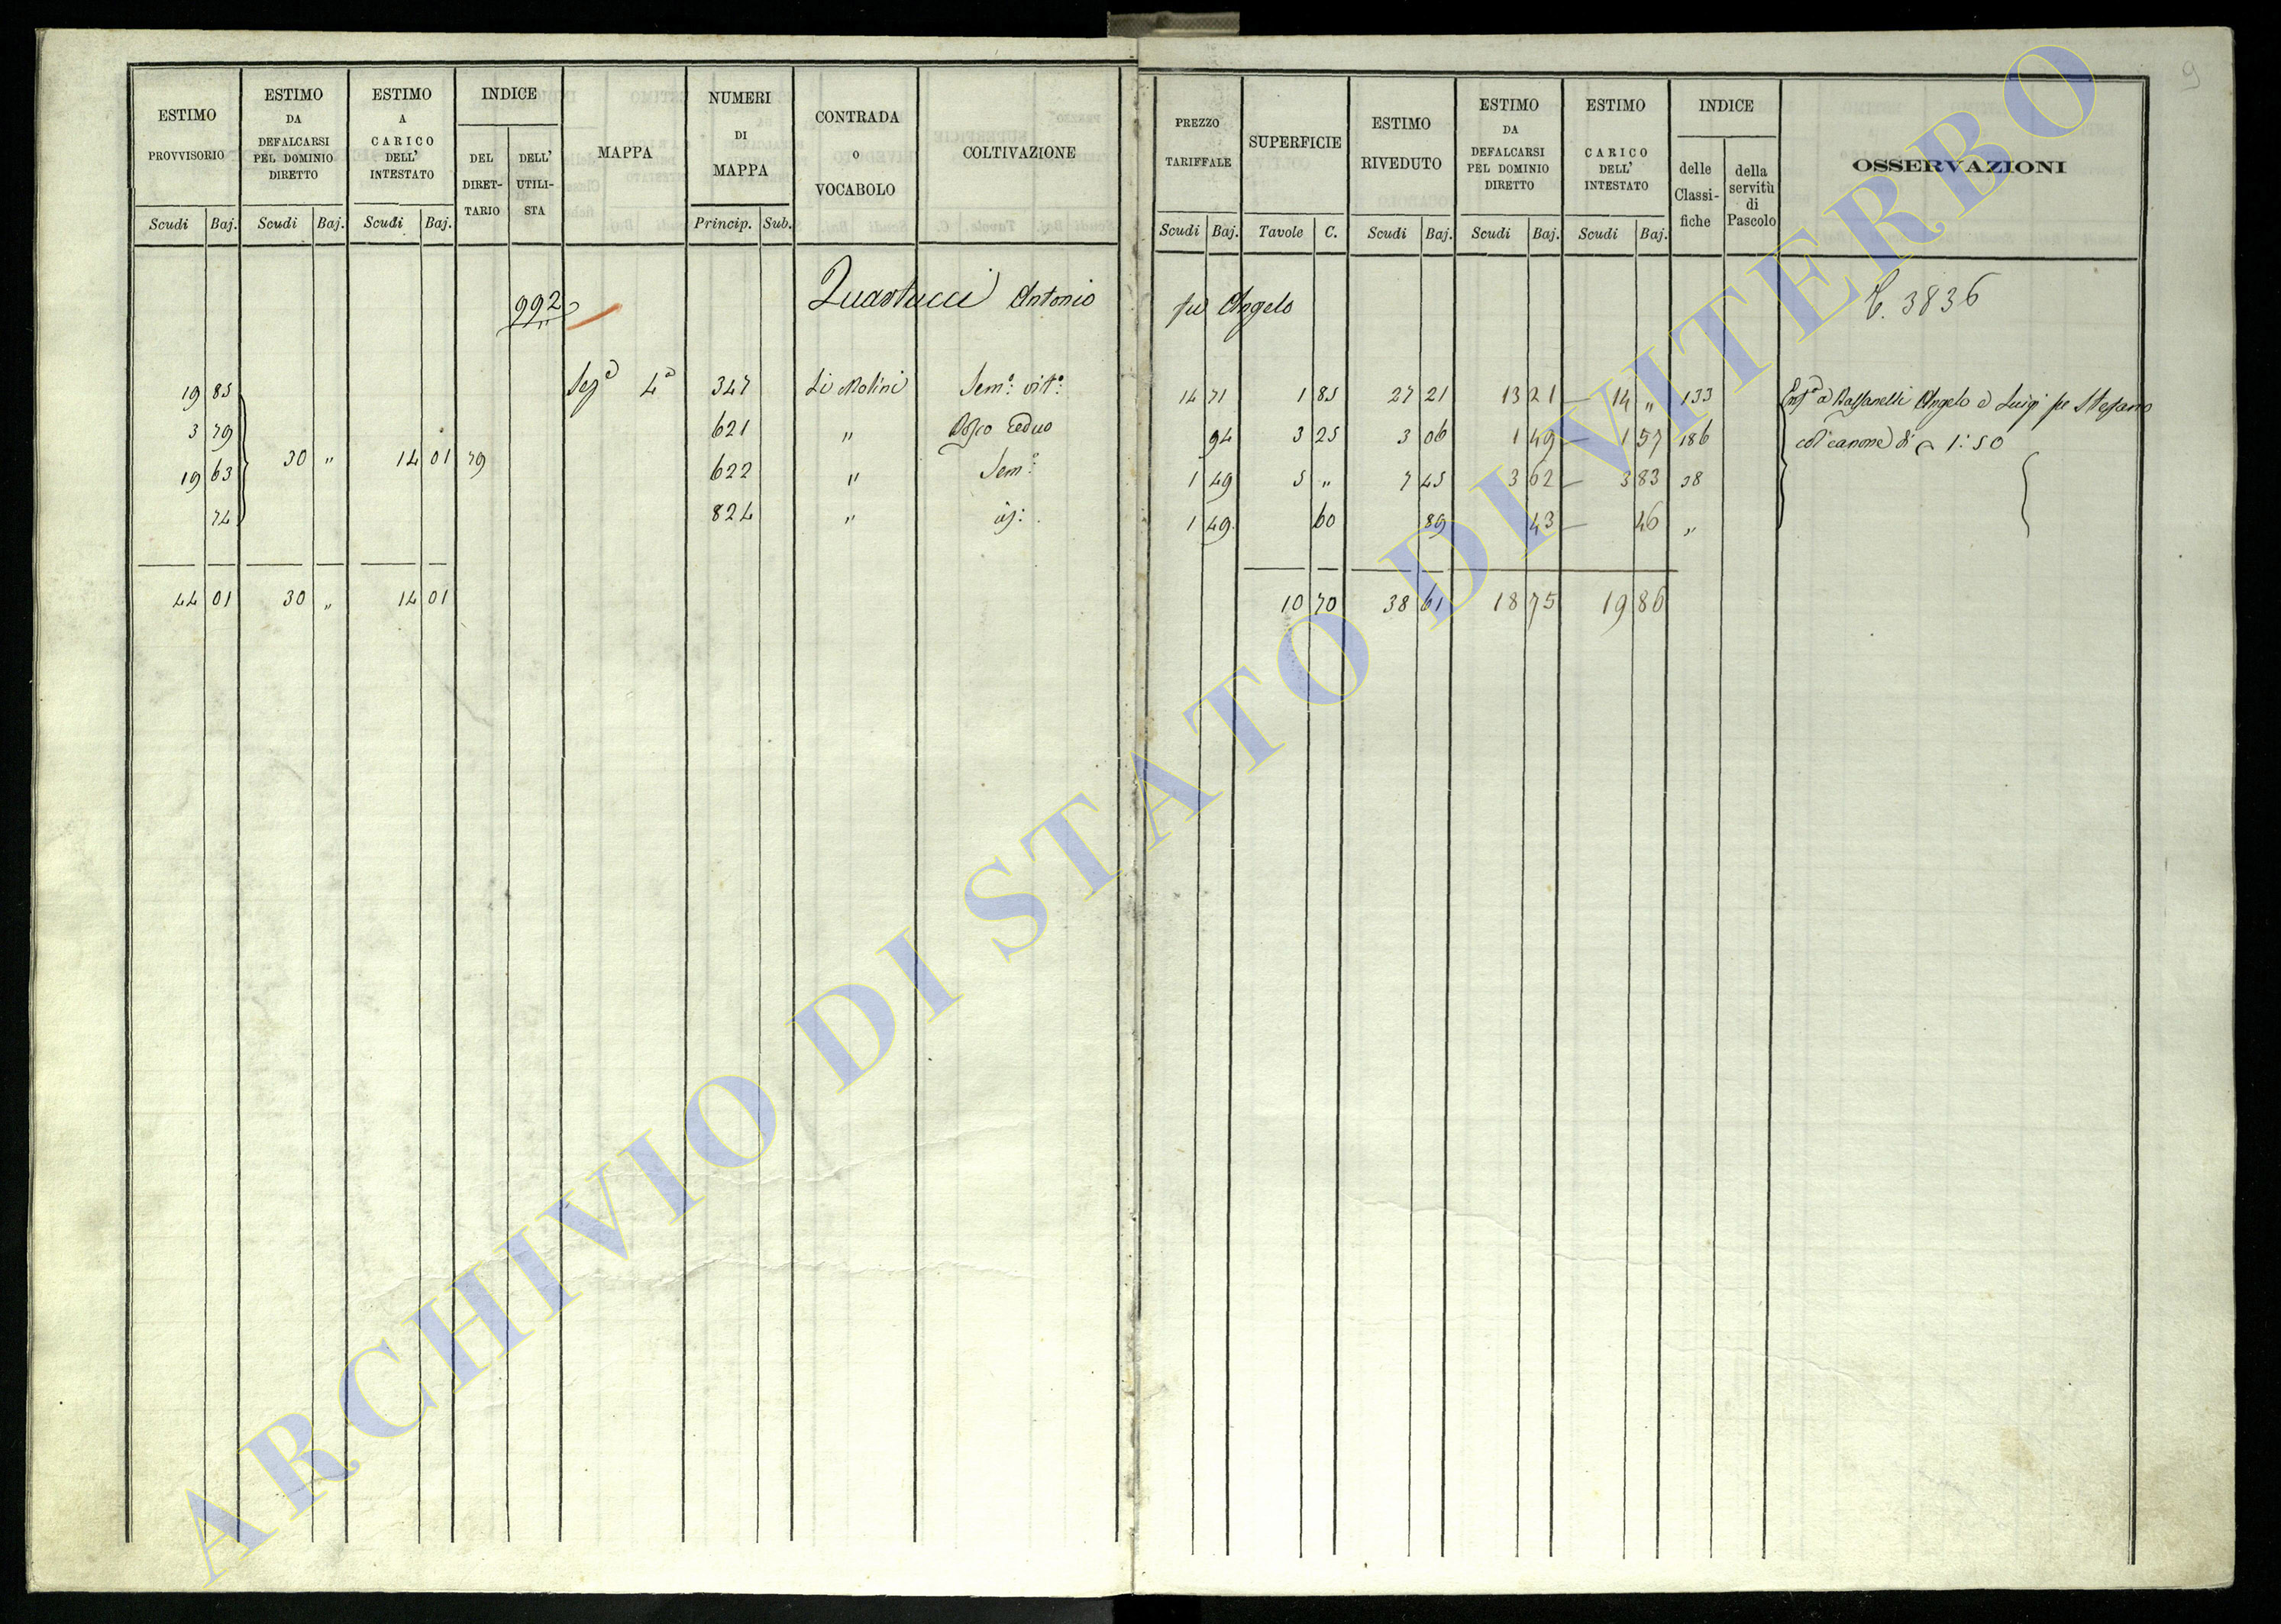 ESTIMO PROVVISORIO
ESTIMO DA DEFALCARSI PEL DOMINIO DIRETTO
ESTIMO A CARICO DELL' INTESTATO
INDICE
DEL DIRET- TARIO
DELL' UTILI- STA
MAPPA
NUMERI DI MAPPA
CONTRADA O VOCABOLO
COLTIVAZIONE
Scudi Baj. Scudi Baj. Scudi Baj. Princip. Sub.
PREZZO TARIFFALE
SUPERFICIE
ESTIMO RIVEDUTO
ESTIMO DA DEFALCARSI PEL DOMINIO DIRETTO
ESTIMO A CARICO DELL' INTESTATO
INDICE
delle Classi- fiche
della servitù di Pascolo
OSSERVAZIONI
Scudi Baj. Tavole C. Scudi Baj. Scudi Baj. Scudi Baj.
9
992 Quartucci Antonio fu Angelo C. 3836
19 85 Sezᵉ 4ᵃ 347 Li Molini Semᵒ: vitᵒ: 14 71 1 85 27 21 13 21 — 14 " 133 Angelo e Luigi fu Stefano
3 79 621 " Bosco Ceduo 94 3 25 3 06 1 49 — 1 57 186 col canone di 1:50
30 " 14 01 79
19 63 622 " Semᵒ: 1 49 5 " 7 45 3 62 — 3 83 38
74 824 " 1 49 60 89 43 — 46 "
44 01 30 " 14 01 10 70 38 61 18 75 19 86
ARCHIVIO DI STATO DI VITERBO